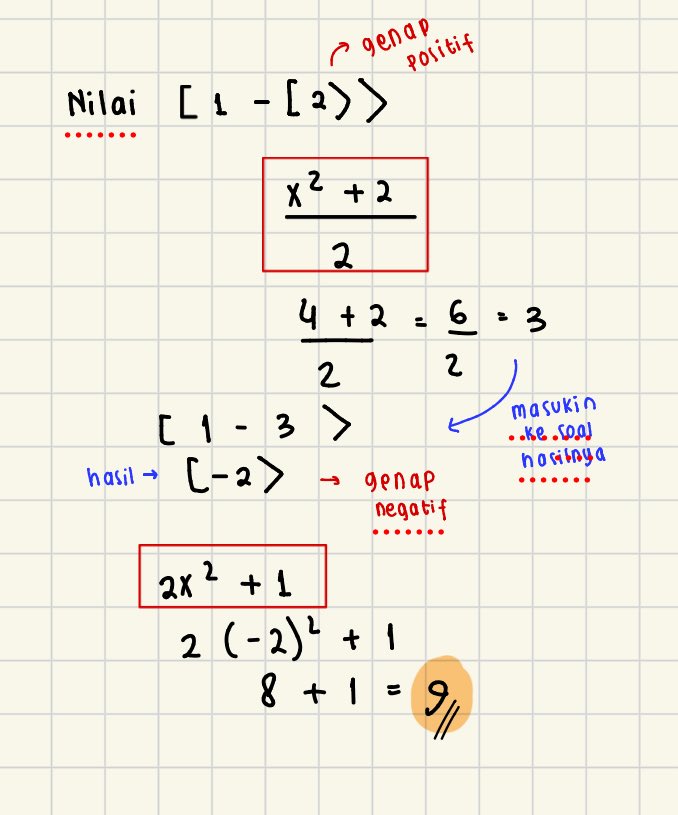 genap
positif
Nilai [ 1 - [ 2 〉 〉
x² + 2
2
4 + 2 = 6 = 3
2 2
[ 1 - 3 〉
masukin
ke soal
hasilnya
hasil → [ -2 〉 → genap
negatif
2x² + 1
2 (-2)² + 1
8 + 1 = 9